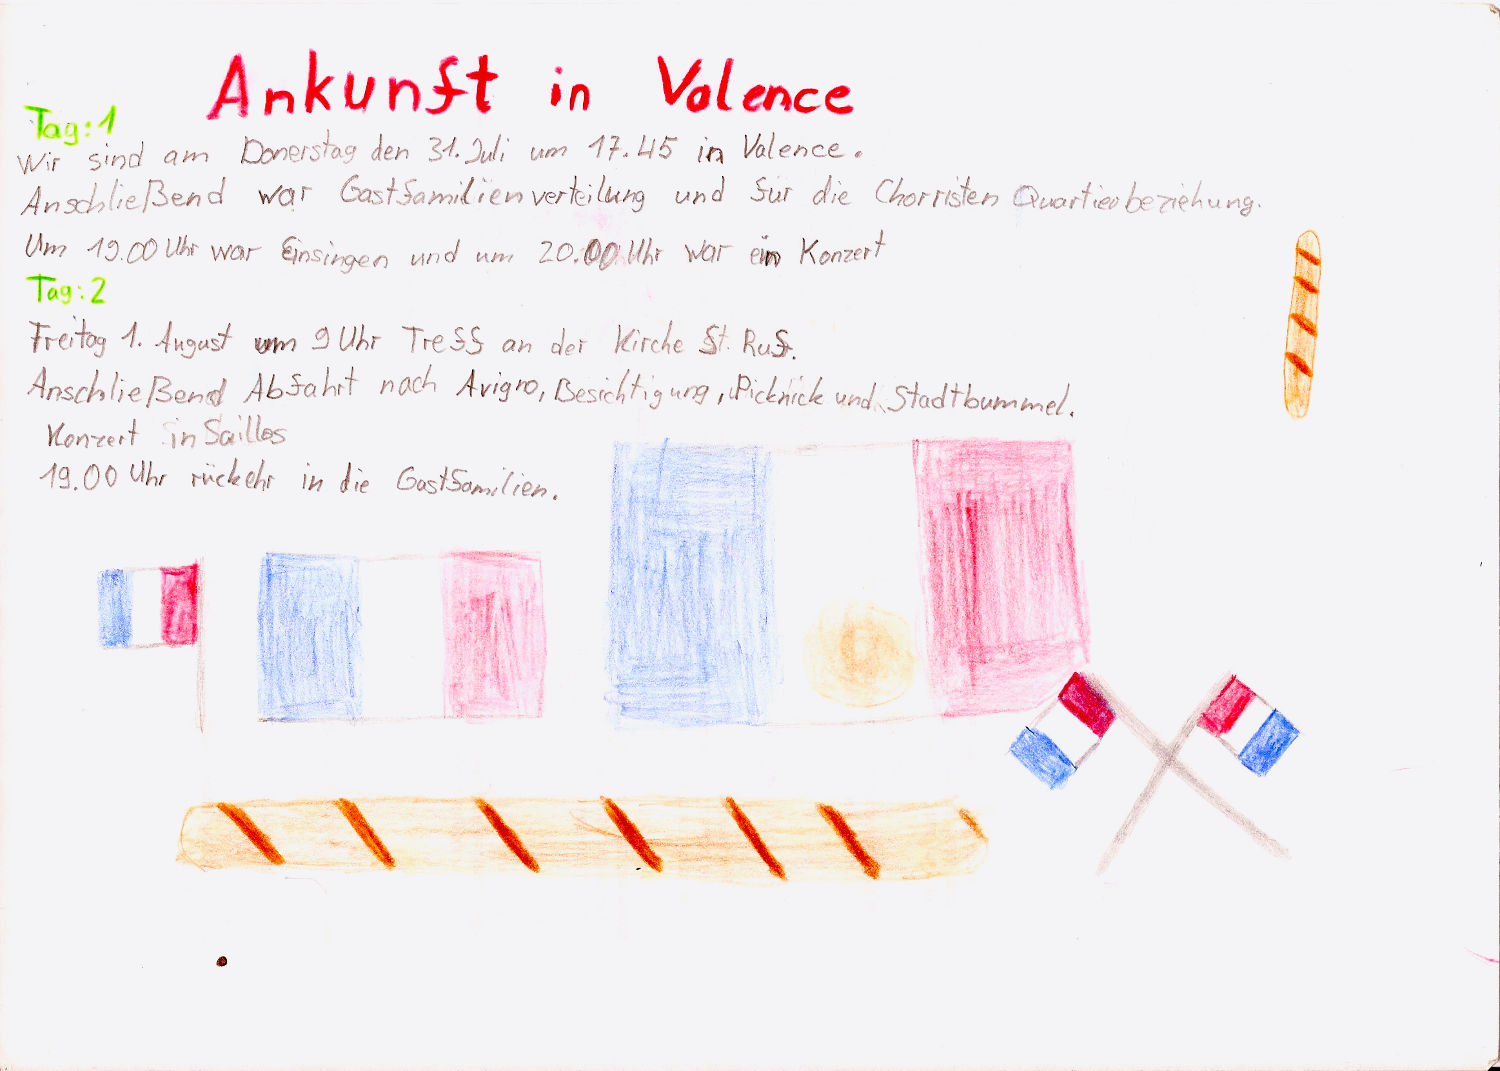 Ankunft in Valence
Tag:1
Wir sind am Donerstag den 31. Juli um 17.45 in Valence.
Anschließend war Gastfamilienverteilung und für die Chorristen Quartierbeziehung.
Um 19.00 Uhr war Einsingen und um 20.00 Uhr war ein Konzert
Tag:2
Freitag 1. August um 9 Uhr Treff an der Kirche St. Ruf.
Anschließend Abfahrt nach Avigno, Besichtigung, Picknick und Stadtbummel.
Konzert in Saillas
19.00 Uhr rückehr in die Gastfamilien.